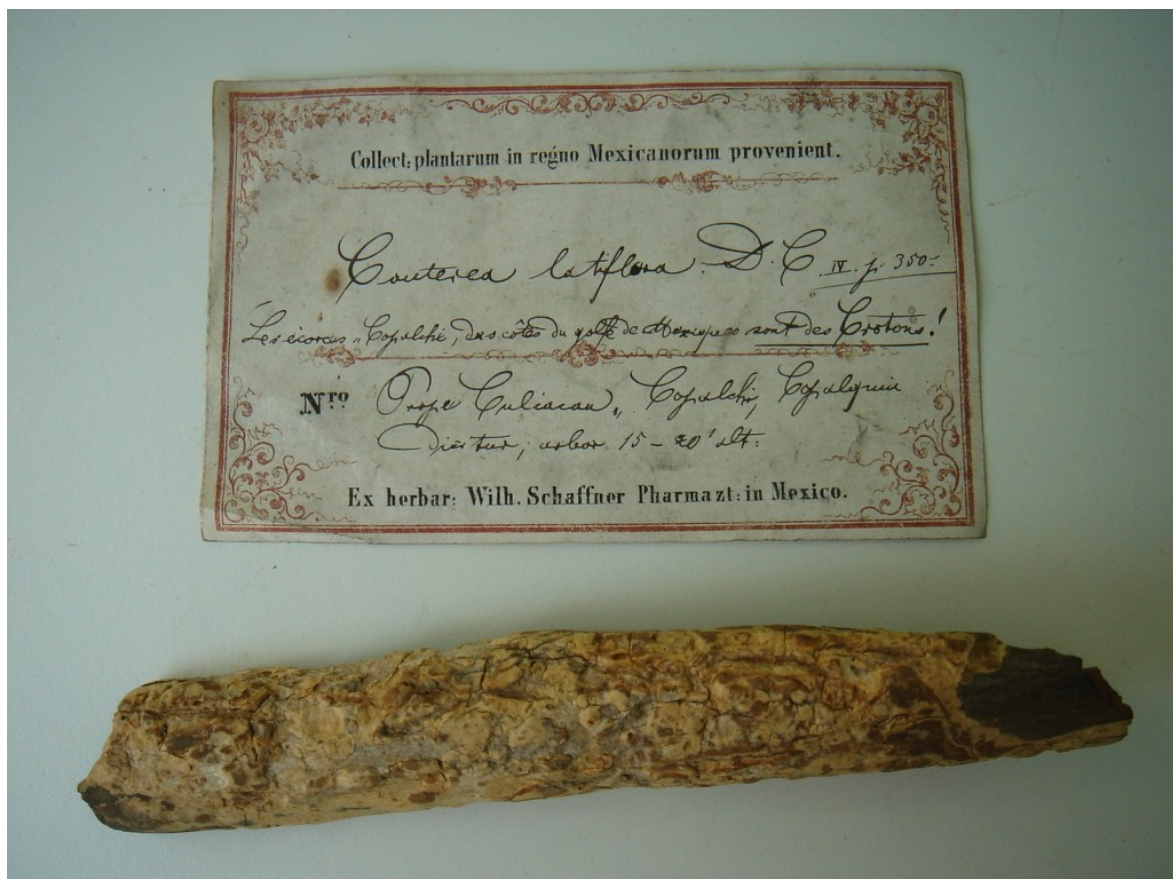 Collect: plantarum in regno Mexicanorum provenient.
Couterea latiflora. D. C. IV. p. 350.
Les écorces „Copalchi, des côtes du golfe de Mexique sont des Crotons!
Nro Prope Culiacan „Copalchi, Copalquin
dicitur; arbor 15-20' alt:
Ex herbar: Wilh. Schaffner Pharmazt: in Mexico.